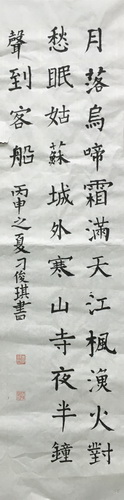 月落烏啼霜滿天江楓漁火對
愁眠姑蘇城外寒山寺夜半鐘
聲到客船 丙申之夏刁俊琪書